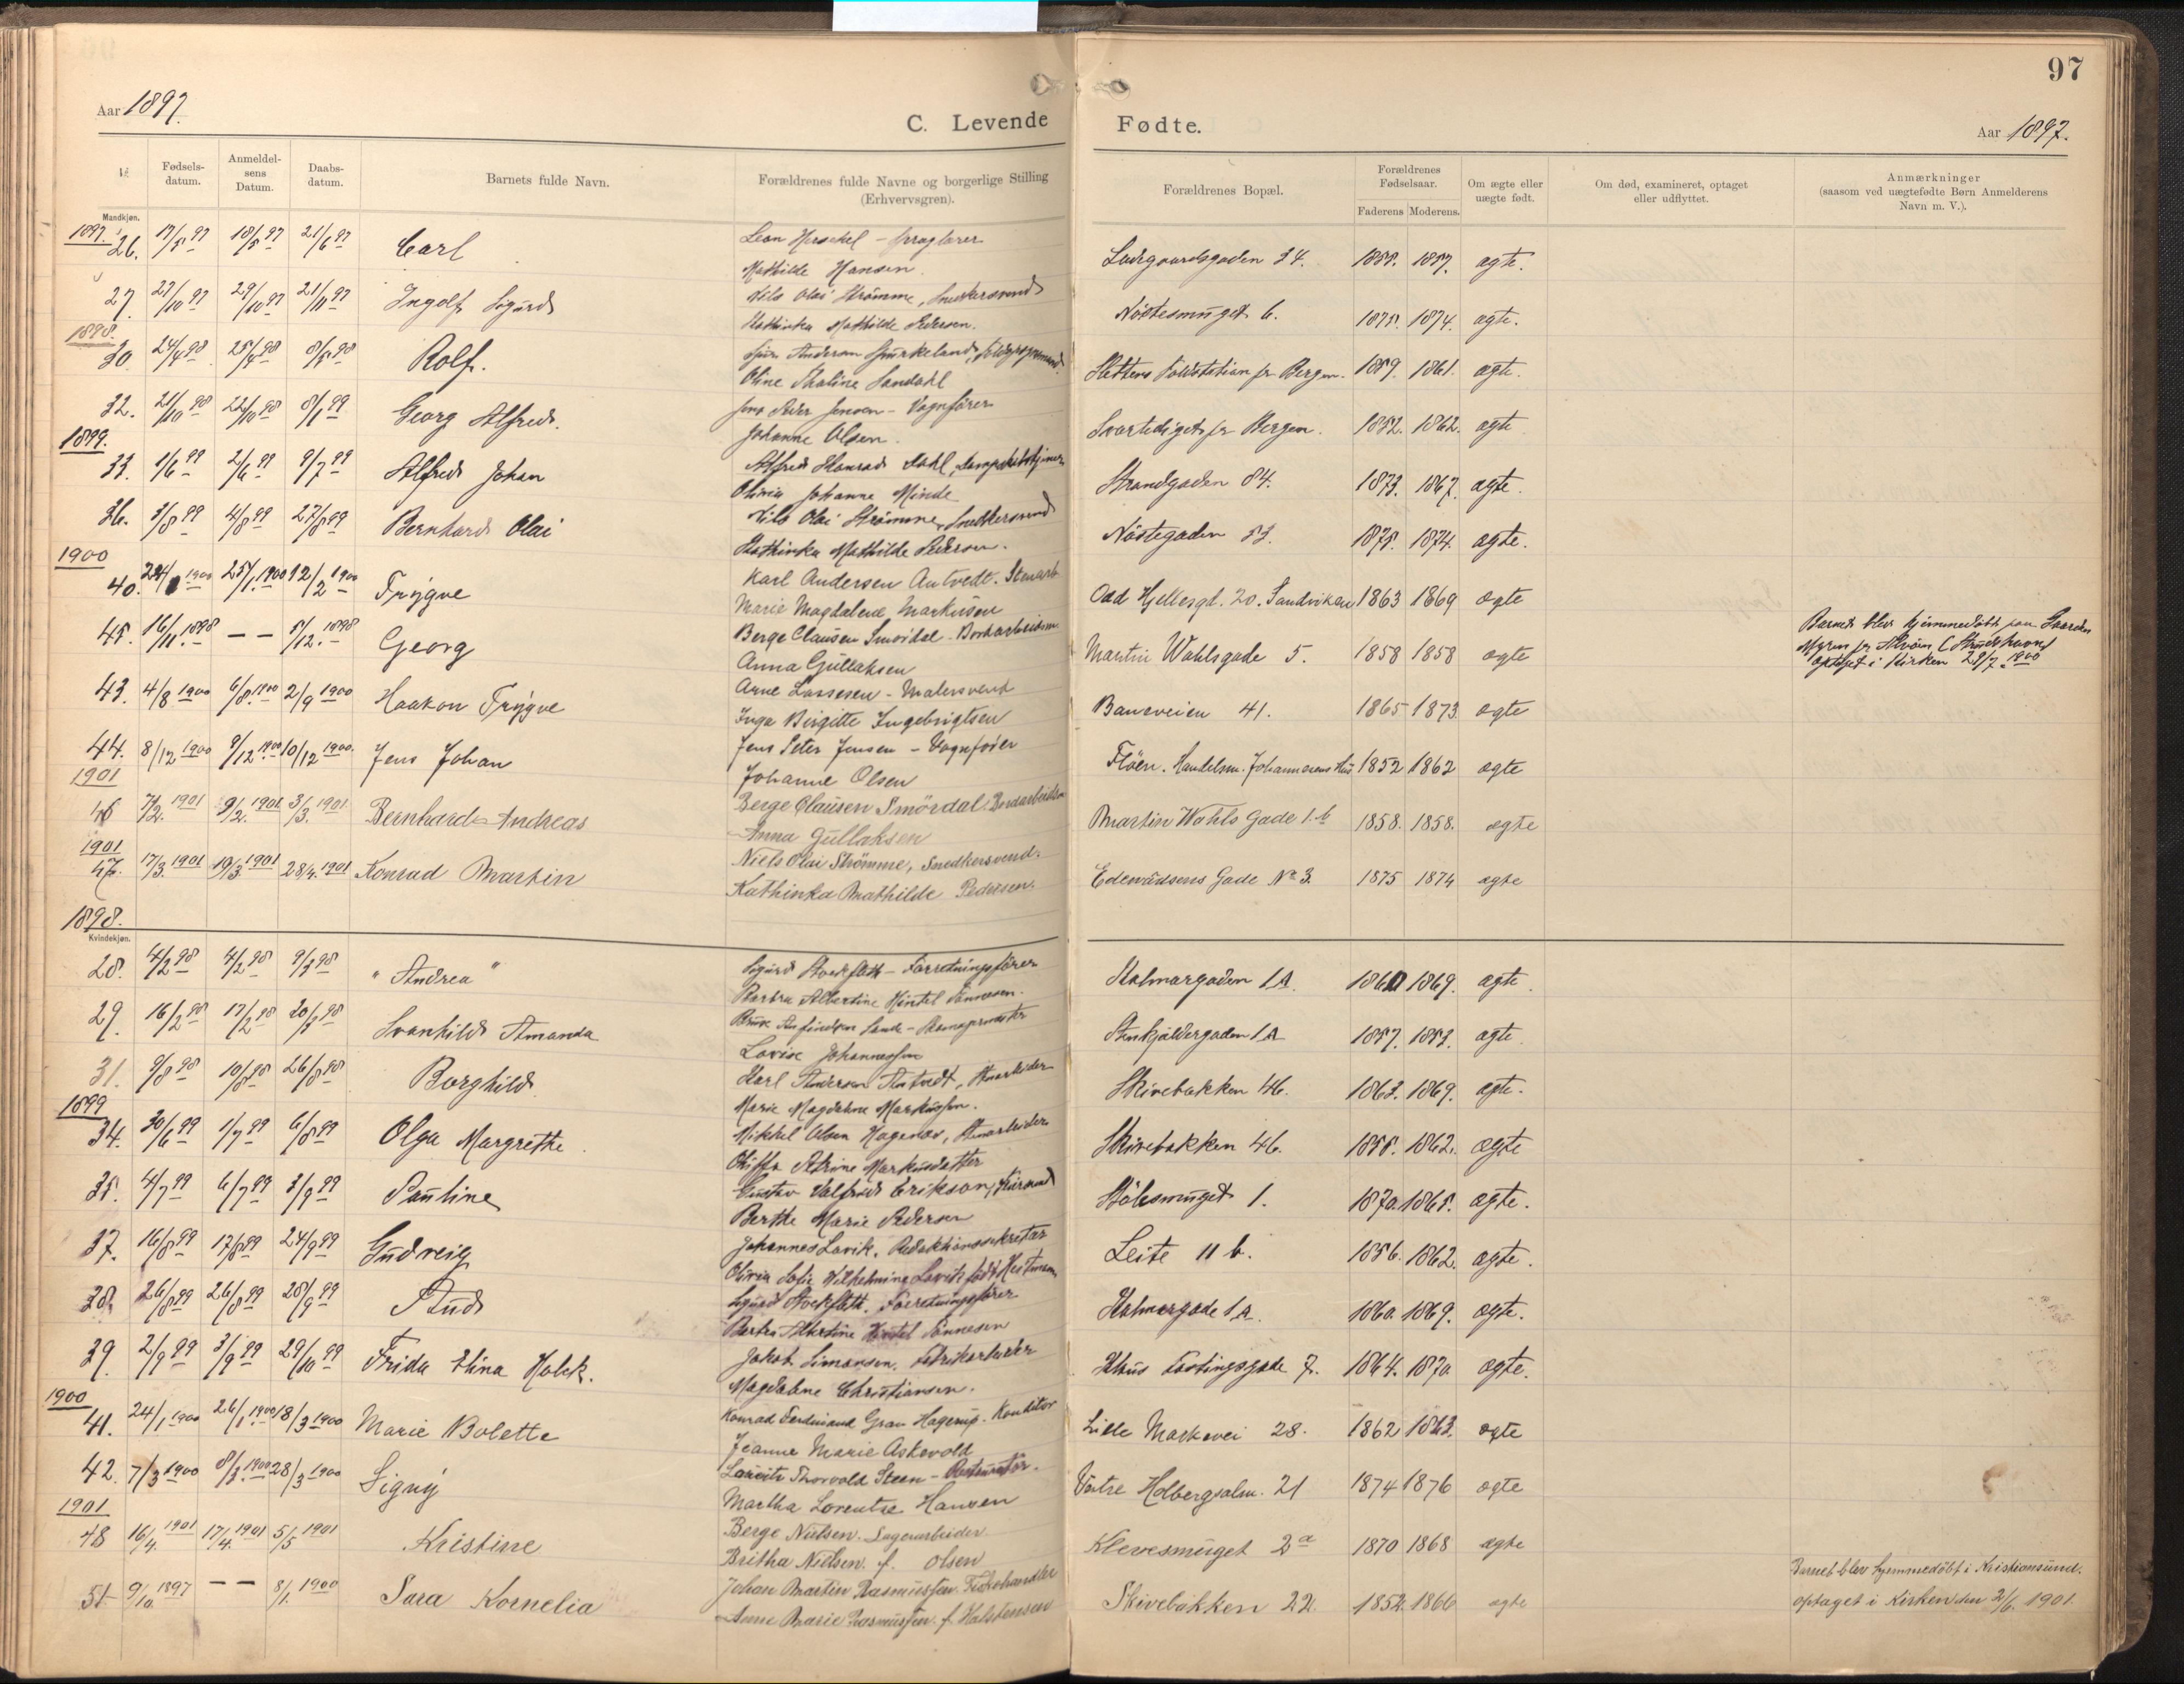 97
Aar 1897.
C. Levende Fødte.
Aar 1897.
№ Fødsels-datum. Anmeldel-sens Datum. Daabs-datum. Barnets fulde Navn. Forældrenes fulde Navne og borgerlige Stilling (Erhvervsgren). Forældrenes Bopæl. Forældrenes Fødselsaar. Faderens Moderens. Om ægte eller uægte født. Om død, examineret, optaget eller udflyttet. Anmærkninger (saasom ved uægtefødte Børn Anmelderens Navn m. V.).
Mandkjøn.
1897.
26. 17/5 97 18/5 97 21/6 97 Carl Leon Herschel - Sproglærer Ladegaardsgaden 34. 1855. 1857. ægte.
Mathilde Hansen
27. 27/10 97 29/10 97 21/11 97 Ingolf Sigurd Nils Olai Strømme, Snedkersvend Nøstesmuget 6. 1875. 1874. ægte.
Kathinka Mathilde Pedersen.
1898.
30. 24/4 98 25/4 98 8/5 98 Rolf. Sjur Anderson Spurkeland, Slettens Toldstation pr Bergen. 1859. 1861. ægte.
Oline Thaline Sandahl
32. 21/10 98 22/10 98 8/1 99 Georg Alfred. Jens Peder Jensen - Vognfører Svartediget pr Bergen. 1852. 1862. ægte
Johanne Olsen.
1899.
33. 1/6 99 2/6 99 9/7 99 Alfred Johan Alfred Konrad Dahl, Strandgaden 84. 1873. 1867. ægte.
Olivia Johanne Minde
36. 3/8 99 4/8 99 27/8 99 Bernhard Olai Nils Olai Strømme, Snedkersvend Nøstegaden 53. 1875. 1874. ægte.
Kathinka Mathilde Pedersen.
1900
40. 24/1 1900 25/1 1900 12/2 1900 Trygve Karl Andersen Antvedt. Stenarb. Odd Hjellesgt. 20. Sandviken 1863 1869 ægte
Marie Magdalene Markusen
45. 16/11. 1898 — — 5/12. 1898 Georg Berge Clausen Smördal - Bordarbeidsm. Martin Wahlsgade 5. 1858 1858 ægte Barnet blev hjemmedøbt paa
Anna Gullaksen Myren pr Alvöen optaget i Kirken 29/7 1900
43. 4/8 1900 6/8. 1900 2/9 1900 Haakon Trygve Arne Lassesen - Malersvend Baneveien 41. 1865 1873 ægte
Inga Birgitte Ingebrigtsen
44. 8/12 1900 9/12 1900 10/12 1900. Jens Johan Jens Peter Jensen - Vognfører Flöen. Handelsm. Johannesens Hus 1852 1862 ægte
Johanne Olsen
1901
46 7/2. 1901 9/2. 1901 3/3. 1901 Bernhard Andreas Berge Clausen Smördal. Bordarbeidsm. Martin Wahls Gade 1.b 1858. 1858. ægte
Anna Gullaksen
1901
47. 17/3. 1901 19/3. 1901 28/4. 1901 Konrad Martin Niels Olai Strömme, Snedkersvend. Edevardsens Gade No 3. 1875 1874 ægte
Kathinka Mathilde Pedersen.
1898.
Kvindekjøn.
28. 4/2 98 4/2 98 9/3 98 "Andrea" Sigurd Stockfleth - Forretningsfører Kalmargaden 1A. 1860 1869. ægte.
Barbra Albertine Hintel Tønnesen.
29. 16/2 98 17/2 98 20/3 98 Svanhild Amanda Stenkjeldergaden 1A 1857. 1853. ægte.
Lovise Johannessen
31. 9/8 98 10/8 98 26/8 98 Borghild Karl Andersen Antvedt, Stenarbeider Skivebakken 46. 1863. 1869. ægte.
Marie Magdalene Markussen.
1899
34. 30/6 99 1/7 99 6/8 99 Olga Margrethe Mikkel Olsen Hagenæs, Stenarbeider Skivebakken 46. 1855. 1862. ægte
Petrine Markusdatter
35. 4/7 99 6/7 99 3/9 99 Pauline Gustav Valfred Erikson, Kølesmuget 1. 1870. 1865. ægte.
Berthe Marie Pedersen
37. 16/8 99 17/8 99 24/9 99 Gudveig Johannes Lavik, Redaktionssekretær Leite 11 b. 1856. 1862. ægte.
Olivia Sofie Vilhelmine Lavik født
38. 26/8 99 26/8 99 28/9 99 Aud Sigurd Stockfleth. Forretningsfører Kalmargade 1A. 1860. 1869. ægte.
Barbra Albertine Hintel Tønnesen
39. 2/9 99 3/9 99 29/10 99 Frida Elina Holck. Jakob Simonsen. Fabrikarbeider Claus Fastingsgade 7. 1864. 1870. ægte.
Magdalene Christiansen.
1900
41. 24/1 1900 26/1. 1900 18/3 1900 Marie Bolette Konrad Ferdinand Gran Hagerup. Konditor Lille Markevei 28. 1862 1863. ægte
Jeanne Marie Askevold
42. 7/3 1900 8/3. 1900 28/3 1900 Signy Lauritz Thorvald Steen - Restauratør. Vestre Holbergsalm. 21 1874 1876 ægte
Martha Lorentse Hansen
1901
48 16/4. 1901 17/4. 1901 5/5 1901 Kristine Berge Nielsen. Lagerarbeider Klevesmuget 2a 1870 1868 ægte
Britha Nielsen. f. Olsen
51 9/10. 1897 — — 8/1. 1900 Sara Kornelia Johan Martin Rasmussen. Fiskehandler Skivebakken 22. 1852. 1866 ægte Barnet blev hjemmedöbt i Kristiansund.
Anne Marie Rasmussen. f. Halstensen optaget i Kirken den 2/6. 1901.